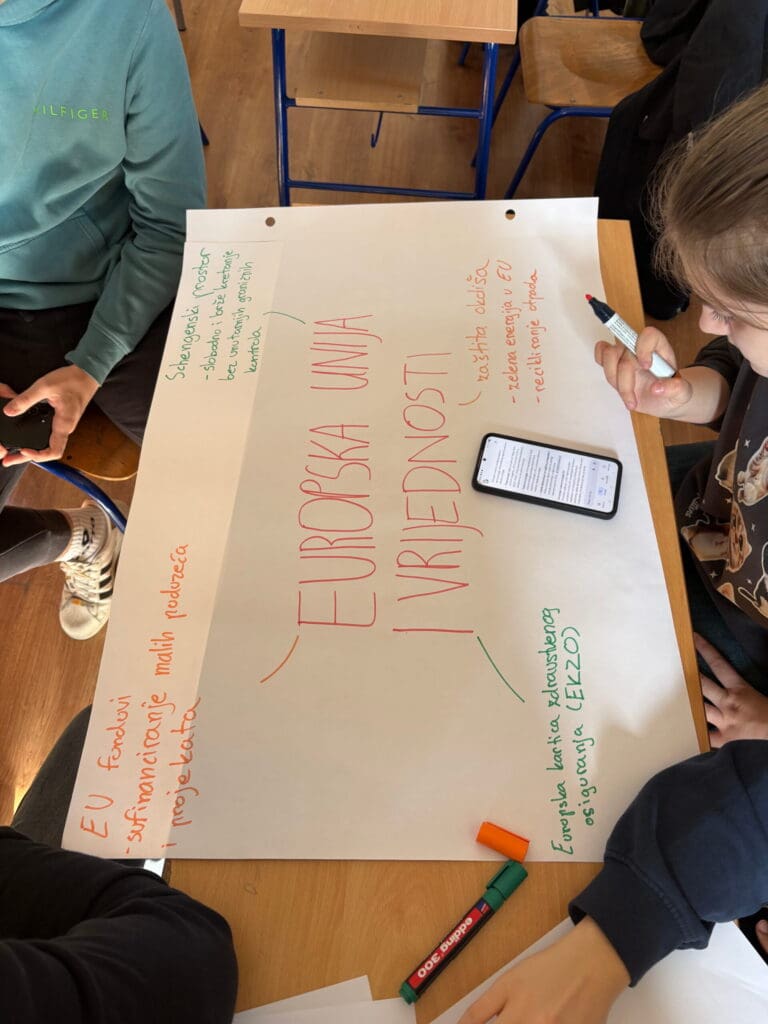 EUROPSKA UNIJA
I VRIJEDNOSTI
EU fondovi
- sufinanciranje malih poduzeća
i projekata
Schengenski prostor
- slobodno i brže kretanje
bez unutarnjih graničnih
kontrola
zaštita okoliša
- zelena energija u EU
- recikliranje otpada
Europska kartica zdravstvenog
osiguranja (EKZO)
HILFIGER
edding 300